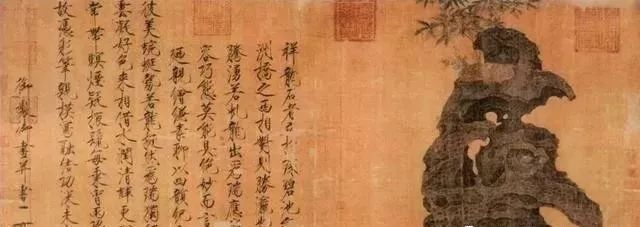 祥龍石者立於環碧池之
洲橋之西相對則勝瀛也
騰湧若虬龍出為瑞應
容巧態莫能具絕妙而言
廼親繪縑素聊以四韻紀
彼美蜿蜒勢若龍挺然為瑞獨
雲凝好色來相借水潤清輝更
常帶暝煙疑振鬣每乘宵雨恐
故憑彩筆親模寫融結功深未
御製御畫并書